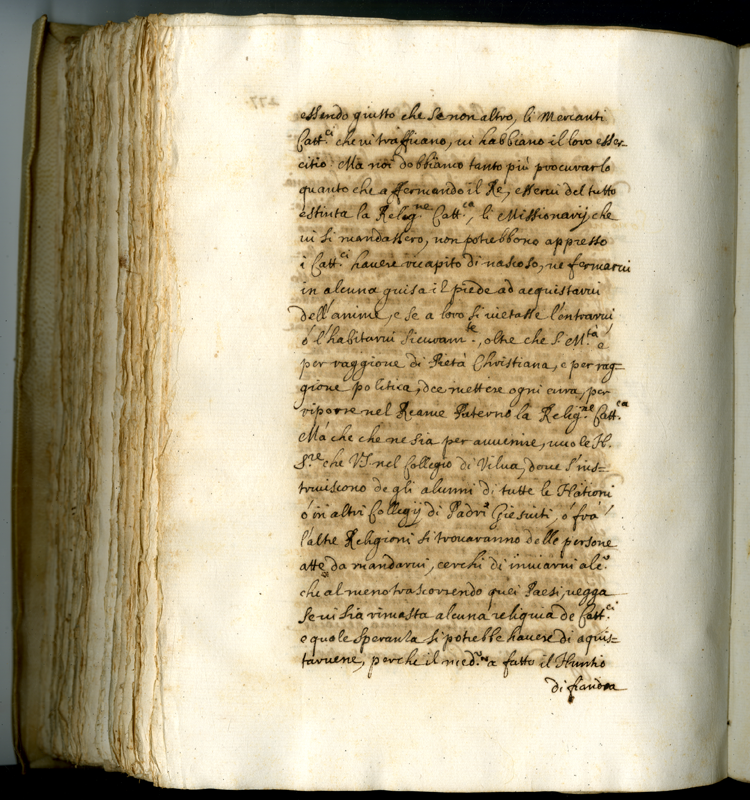 essendo giusto che se non altro, li Mercanti
Catt.ci che vi traffivano, vi habbiano il loro esser-
citio. Ma noi dobbiamo tanto più procurarlo
quanto che affermando il Re, esservi del tutto
estinta la Relig.ne Catt.ca, li Missionarij, che
vi si mandassero, non potrebbono appresso
i Catt.ci havere ricapito di nascoso, ne fermarvi
in alcuna guisa il piede ad acquistarvi
dell'anime, e se a loro si vietasse l'entrarvi
ó l'habitarvi sicuram.te, oltre che S. M.tà è
per raggione di Pietà Christiana, e per rag-
gione politica, dee mettere ogni cura, per
riporre nel Reame Paterno la Relig.ne Catt.ca
Mà che che ne sia per avvenire, vuole N.
S.re che VS. nel Collegio di Vilna, dove s'ins=
truiscono de gli alunni di tutte le Nationi
ó in altri Collegij di Padri Giesuiti, ó frà
l'altre Religioni si trovaranno delle persone
atte da mandarvi, cerchi di inviarvi alc.o
che al meno trascorrendo quei Paesi, vegga
se vi sia rimasta alcuna reliquia de Catt.ci
e quale speranza si potrebbe havere di aquis=
tarvene, perche il med.mo a fatto il Nuntio
di fiandra